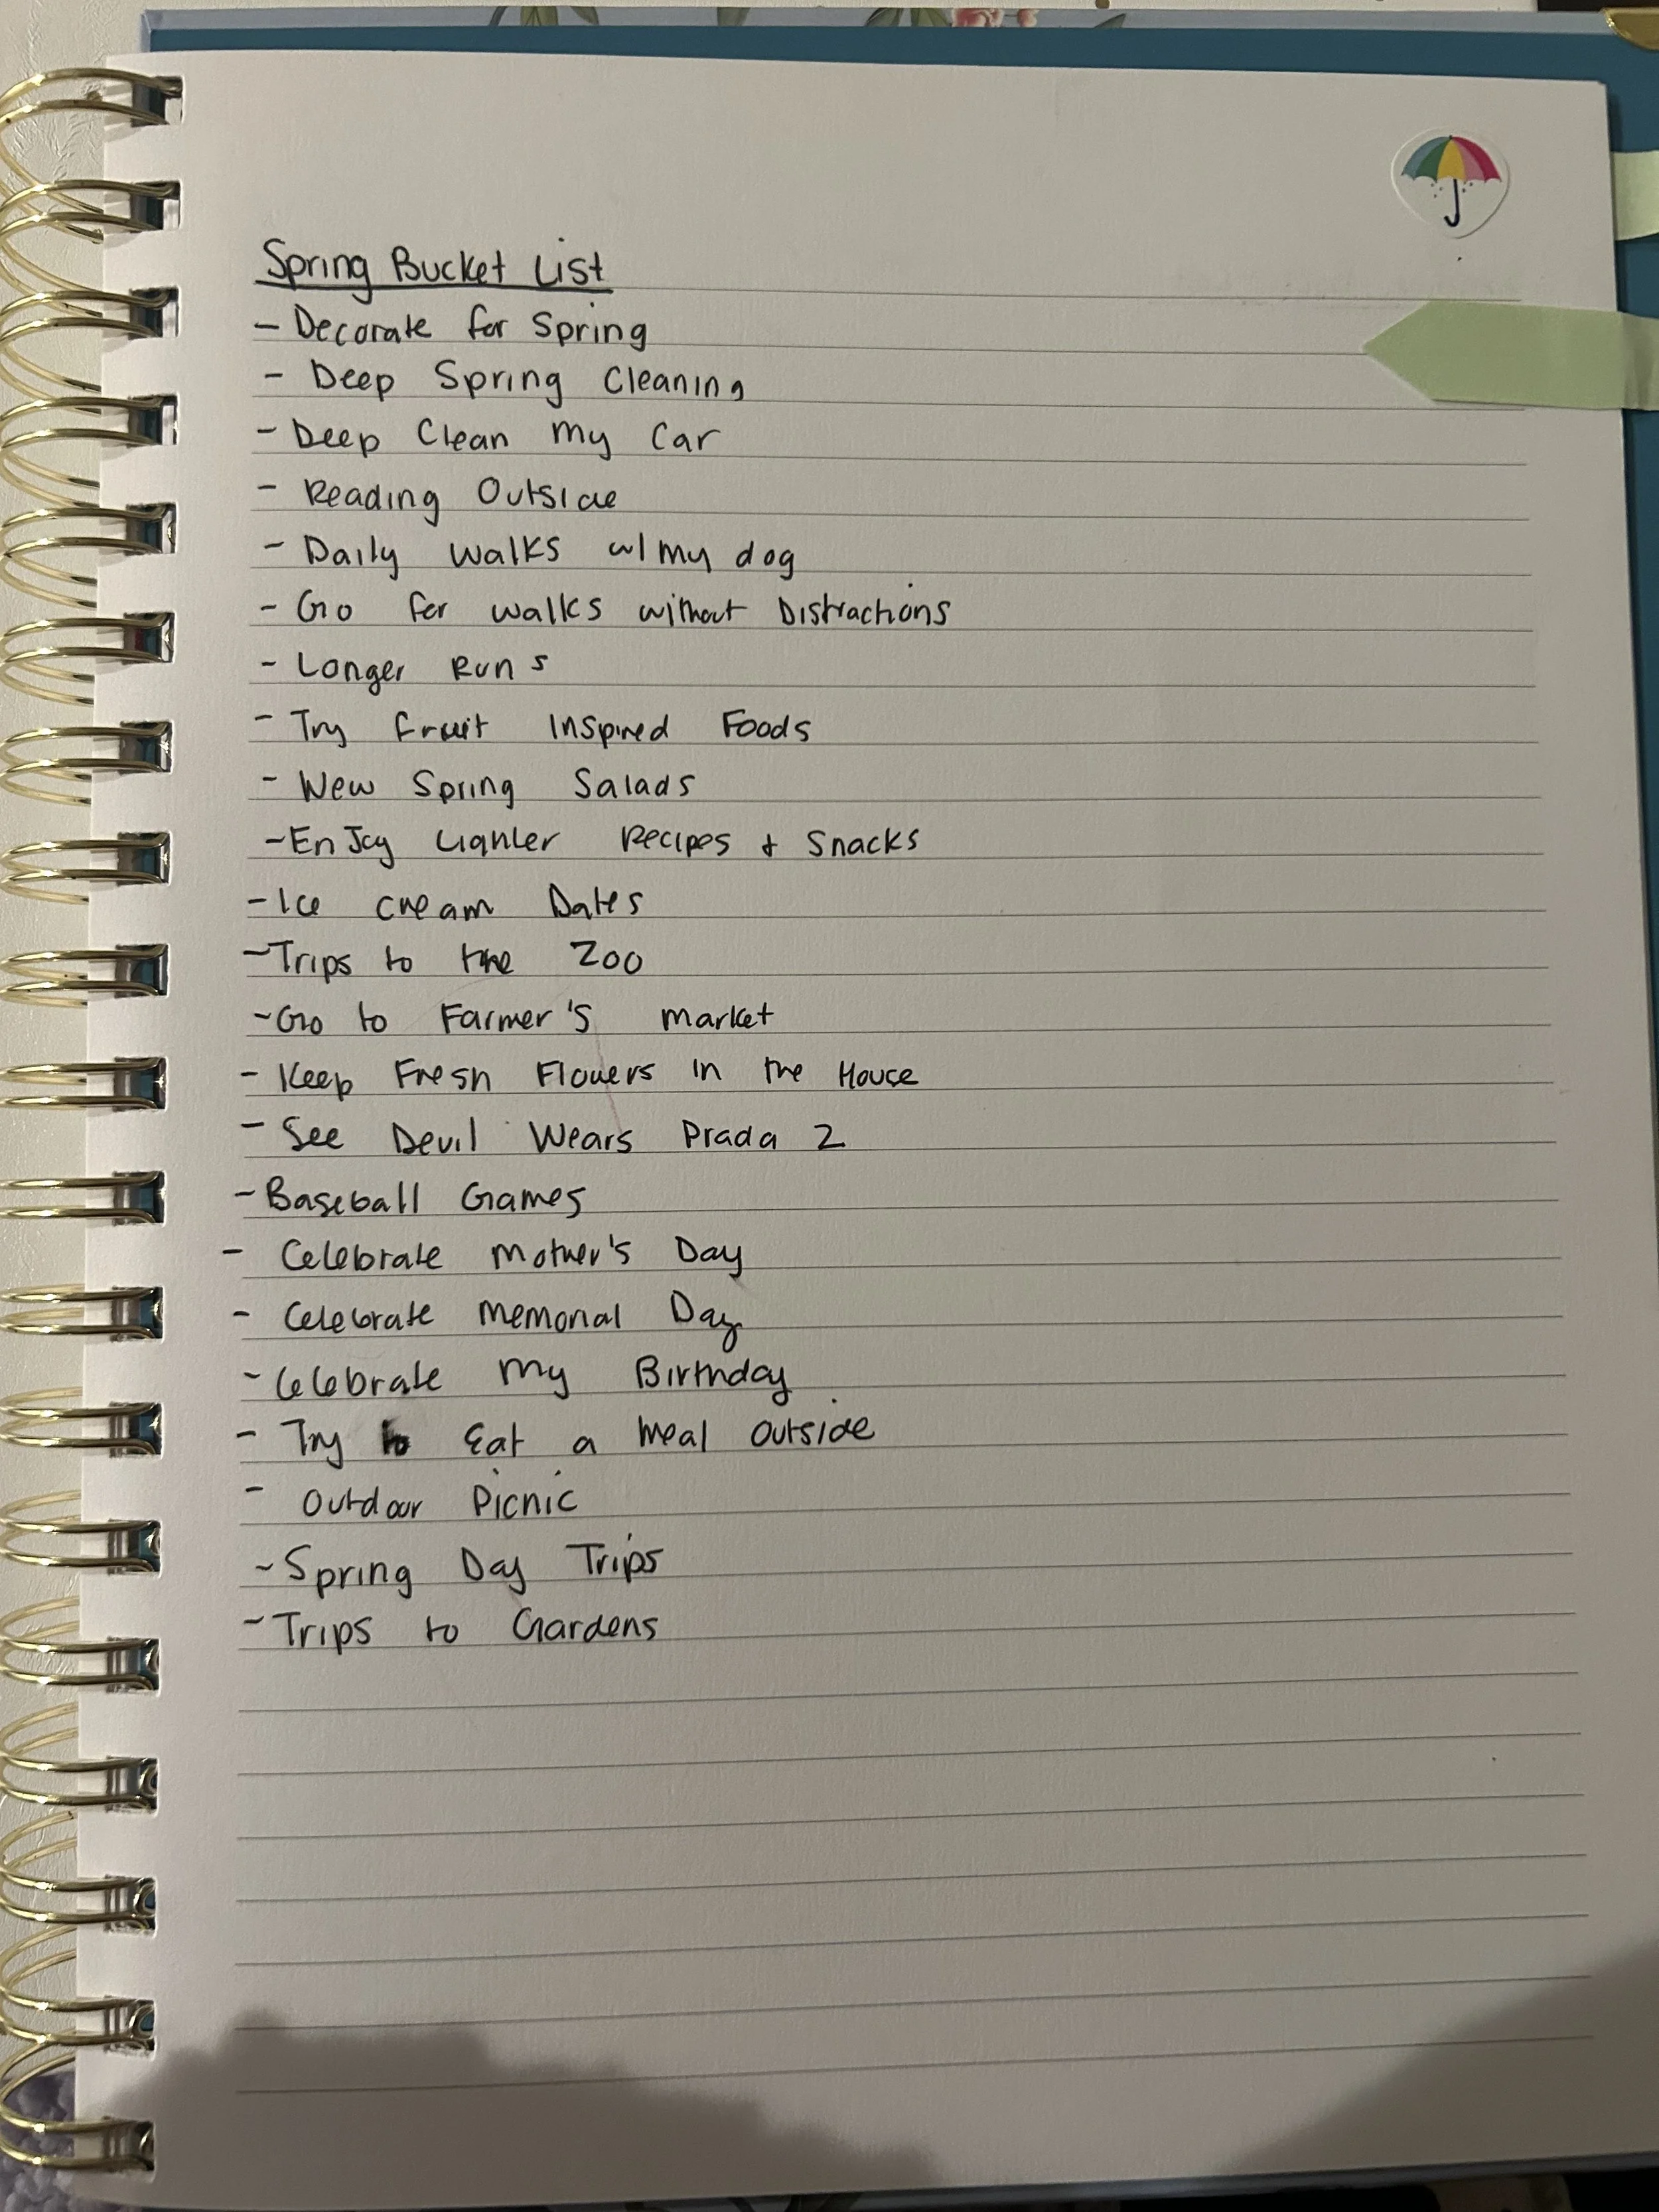 Spring Bucket List
- Decorate for Spring
- Deep Spring Cleaning
- Deep Clean My Car
- Reading Outside
- Daily Walks w/ my dog
- Go for walks without Distractions
- Longer Runs
- Try fruit Inspired Foods
- New Spring Salads
- Enjoy Lighter Recipes + Snacks
- Ice cream Dates
- Trips to the Zoo
- Go to Farmer's market
- Keep Fresh Flowers in the House
- See Devil Wears Prada 2
- Baseball Games
- Celebrate Mother's Day
- Celebrate Memorial Day
- Celebrate My Birthday
- Try to Eat a Meal Outside
- Outdoor Picnic
- Spring Day Trips
- Trips to Gardens